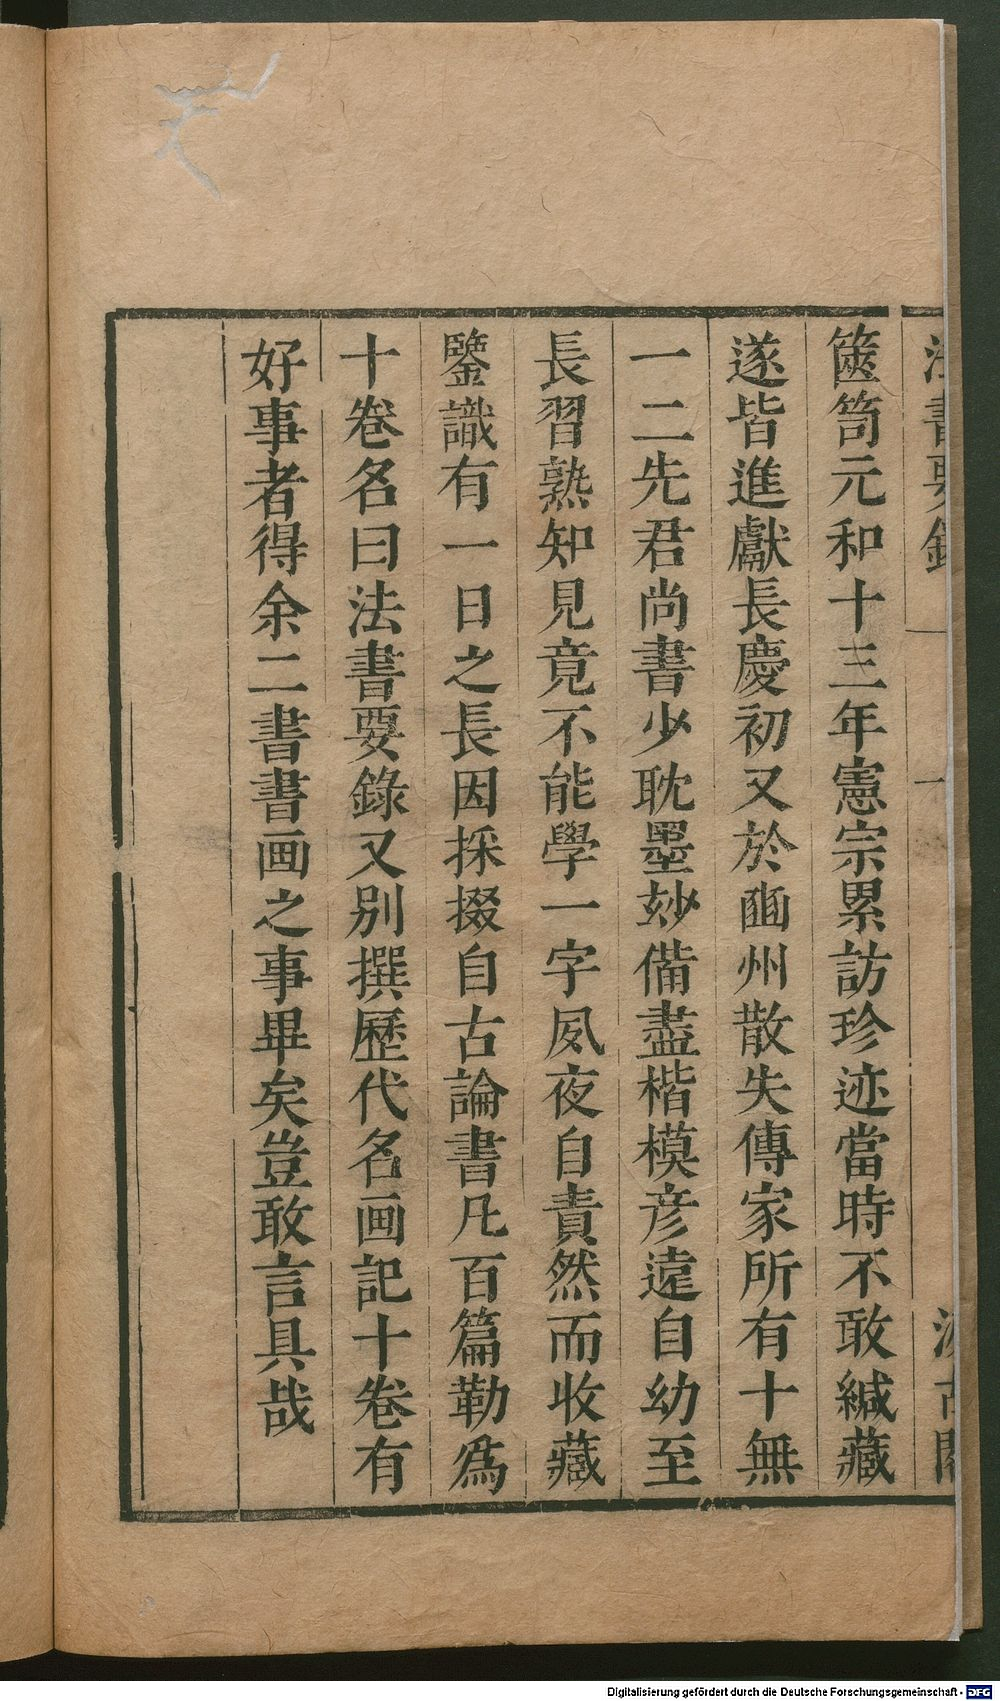 法書要錄
一
汲古閣
篋笥元和十三年憲宗累訪珍迹當時不敢緘藏
遂皆進獻長慶初又於豳州散失傳家所有十無
一二先君尚書少耽墨妙備盡楷模彦遠自幼至
長習熟知見竟不能學一字夙夜自責然而收藏
鑒識有一日之長因採掇自古論書凡百篇勒爲
十卷名曰法書要錄又别撰歷代名画記十卷有
好事者得余二書書画之事畢矣豈敢言具哉
Digitalisierung gefördert durch die Deutsche Forschungsgemeinschaft - DFG